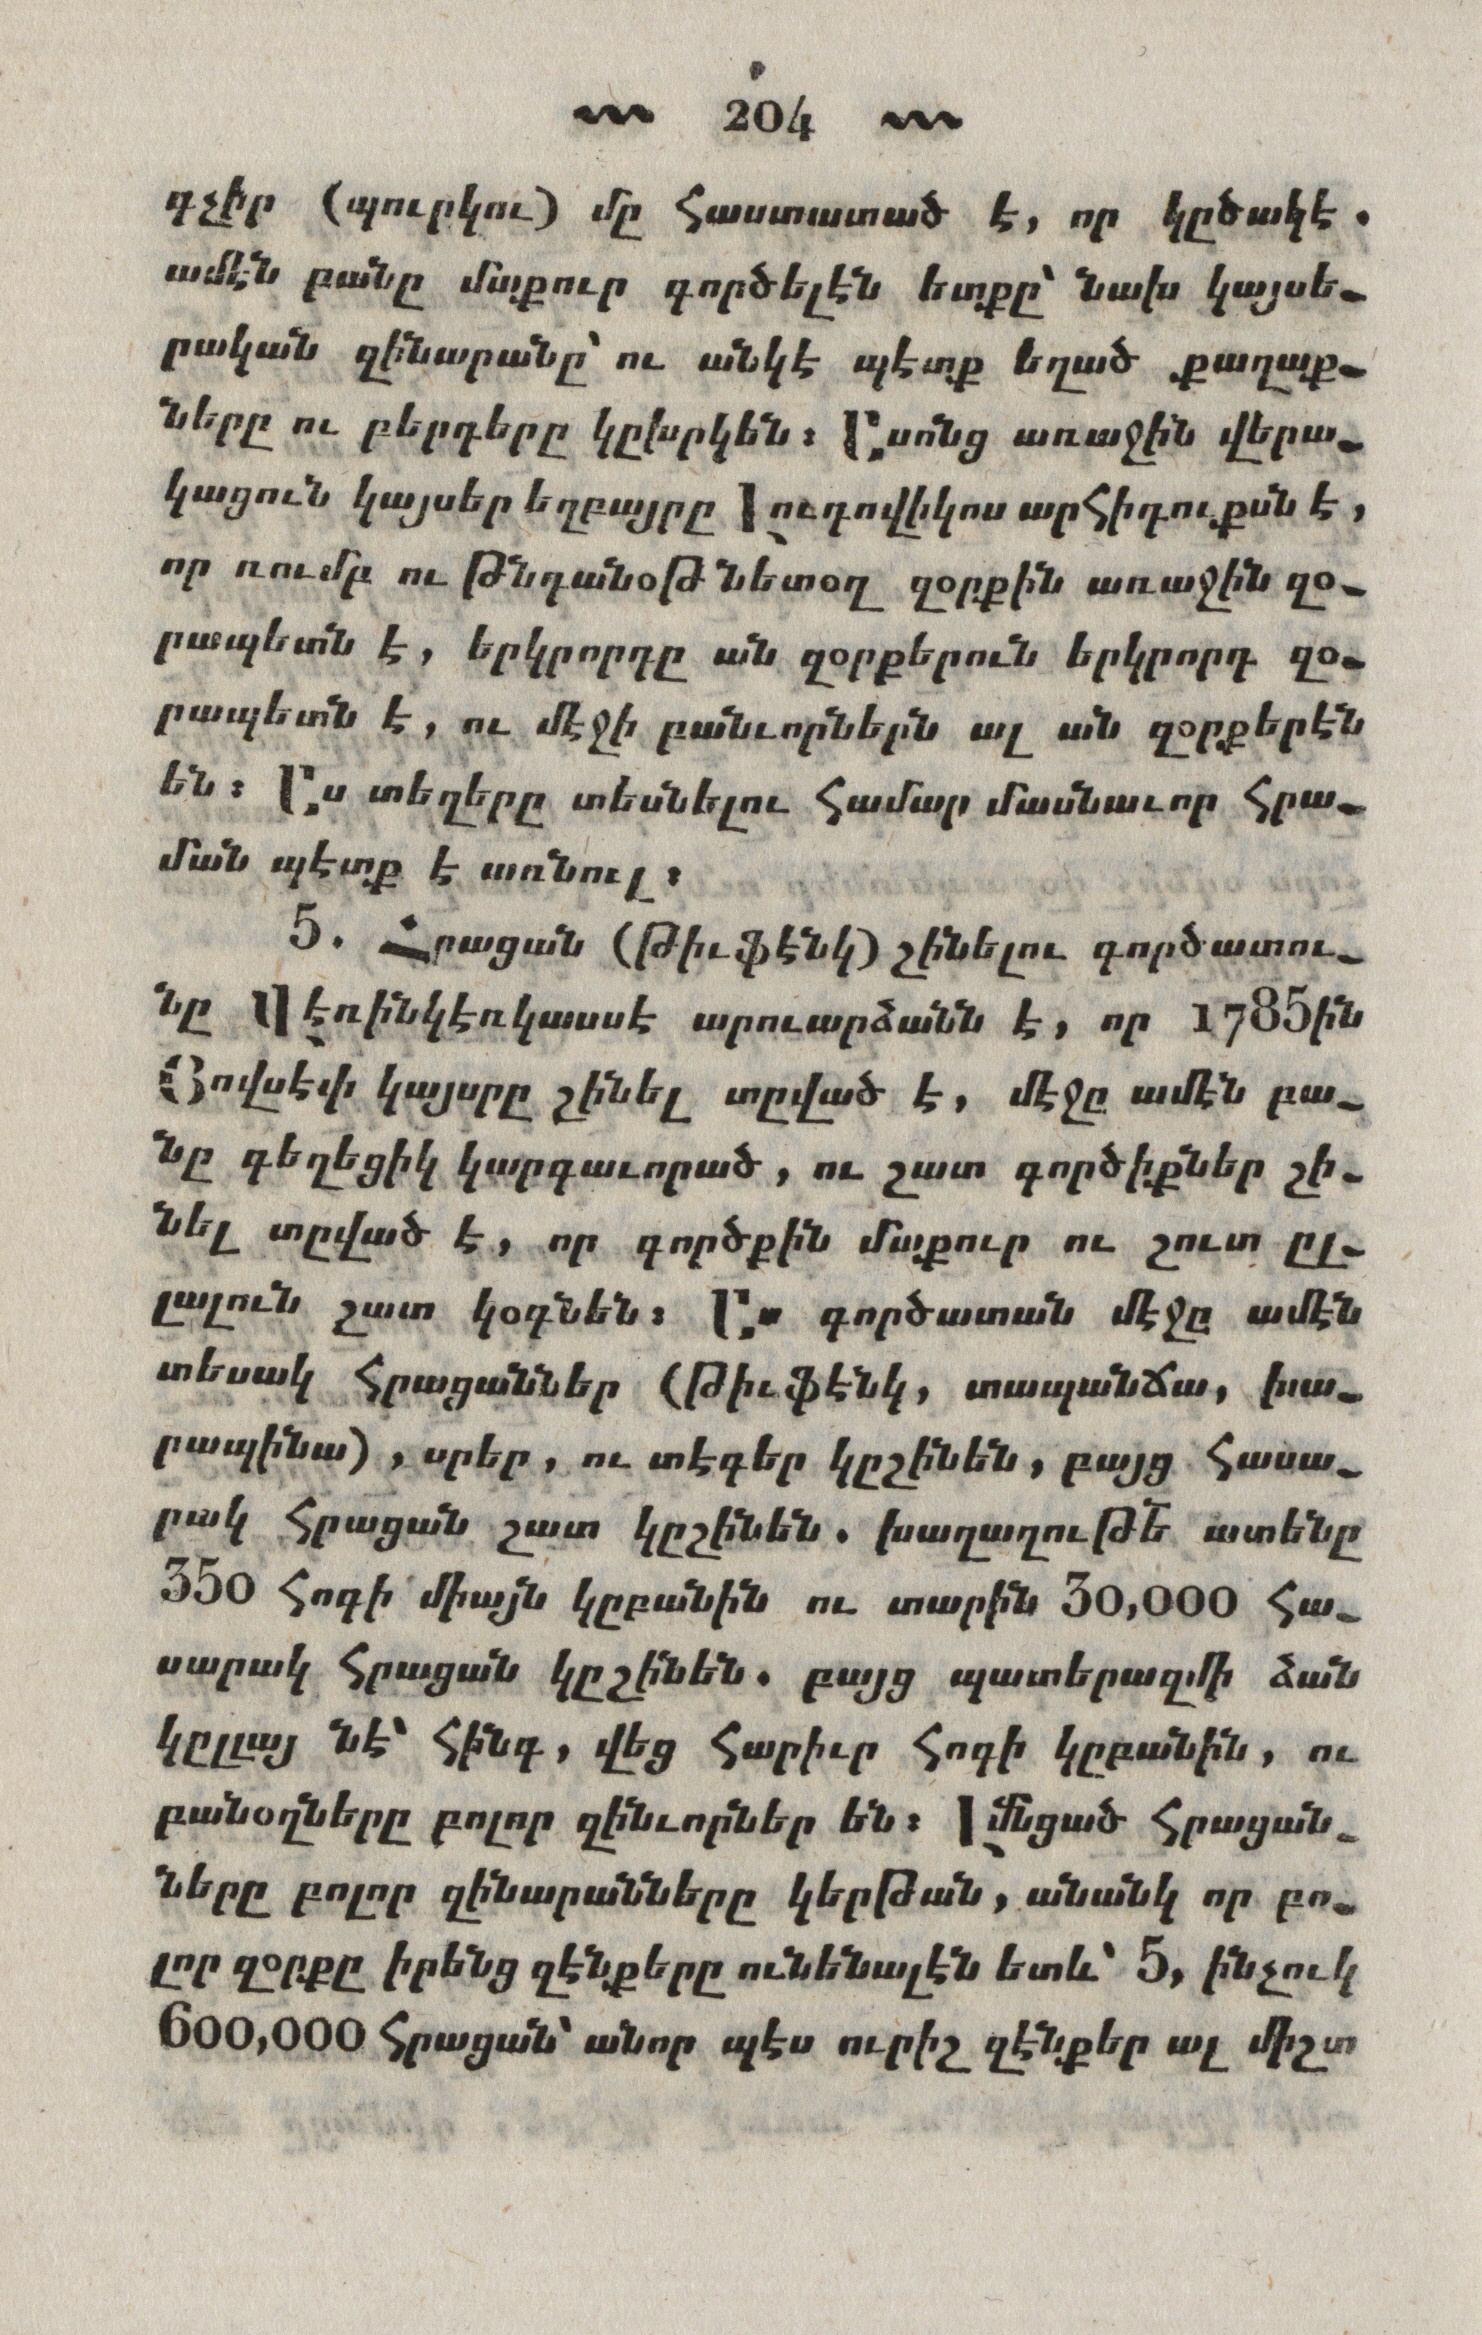 204
գչիր (պուրկու) մը հաստատած է, որ կըծակէ.
ամէն բանը մաքուր գործելէն ետքը՝ նախ կայսե-
րական զինարանը՝ ու անկէ պէտք եղած քաղաք-
ները ու բերդերը կըխրկեն։ Ըսոնց առաջին վերա-
կացուն կայսեր եղբայրը Լուդովիկոս արհիդուքսն է,
որ ռումբ ու թնդանօթ նետօղ զօրքին առաջին զօ-
րապետն է, երկրորդը ան զօրքերուն երկրորդ զօ-
րապետն է, ու մէջի բանւորներն ալ ան զօրքերէն
են։ Ըս տեղերը տեսնելու համար մասնաւոր հրա-
ման պէտք է առնուլ։
5. Հրացան (թիւֆէնկ) շինելու գործատու-
նը Վէռինկէռկասսէ արուարձանն է, որ 1785ին
Յովսէփ կայսրը շինել տըված է, մէջը ամէն բա-
նը գեղեցիկ կարգաւորած, ու շատ գործիքներ շի-
նել տըված է, որ գործքին մաքուր ու շուտ ըլ-
լալուն շատ կօգնեն։ Ըս գործատան մէջը ամէն
տեսակ հրացաններ (թիւֆէնկ, տապանճա, խա-
րապինա), սրեր, ու տէգեր կըշինեն, բայց հասա-
րակ հրացան շատ կըշինեն. խաղաղութե՜ ատենը
350 հոգի միայն կըբանին ու տարին 30,000 հա-
սարակ հրացան կըշինեն. բայց պատերազմի ձան
կըլլայ նէ՝ հինգ, վեց հարիւր հոգի կըբանին, ու
բանօղները բոլոր զինւորներ են։ Լմնցած հրացան-
ները բոլոր զինարանները կերթան, անանկ որ բո-
լոր զօրքը իրենց զէնքերը ունենալէն ետև՝ 5, ինչուկ
600,000 հրացան՝ անոր պէս ուրիշ զէնքեր ալ միշտ